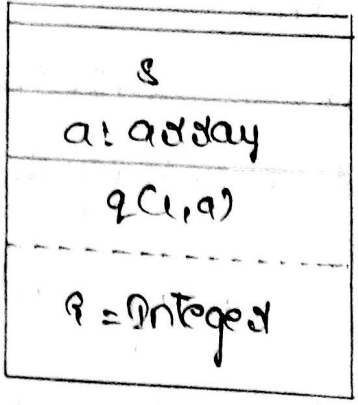 s
a: array
q(1,9)
i = Integer